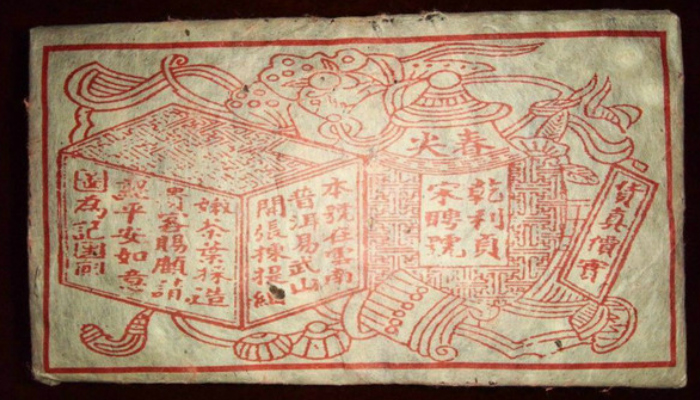 貨真價實
春尖
乾利貞
宋聘號
本號在雲南
普洱易武山
開張揀提細
嫩茶葉採造
貴客賜顧請
認平安如意
圖為記